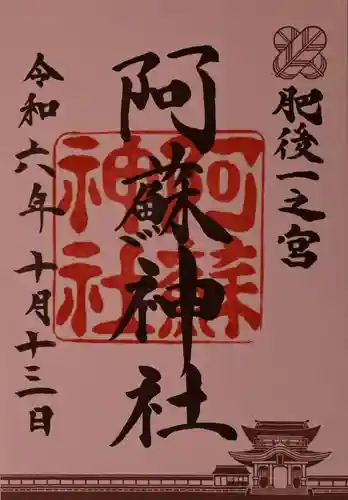 肥後一之宮
阿蘇神社
阿蘇
神社
令和六年十月十三日